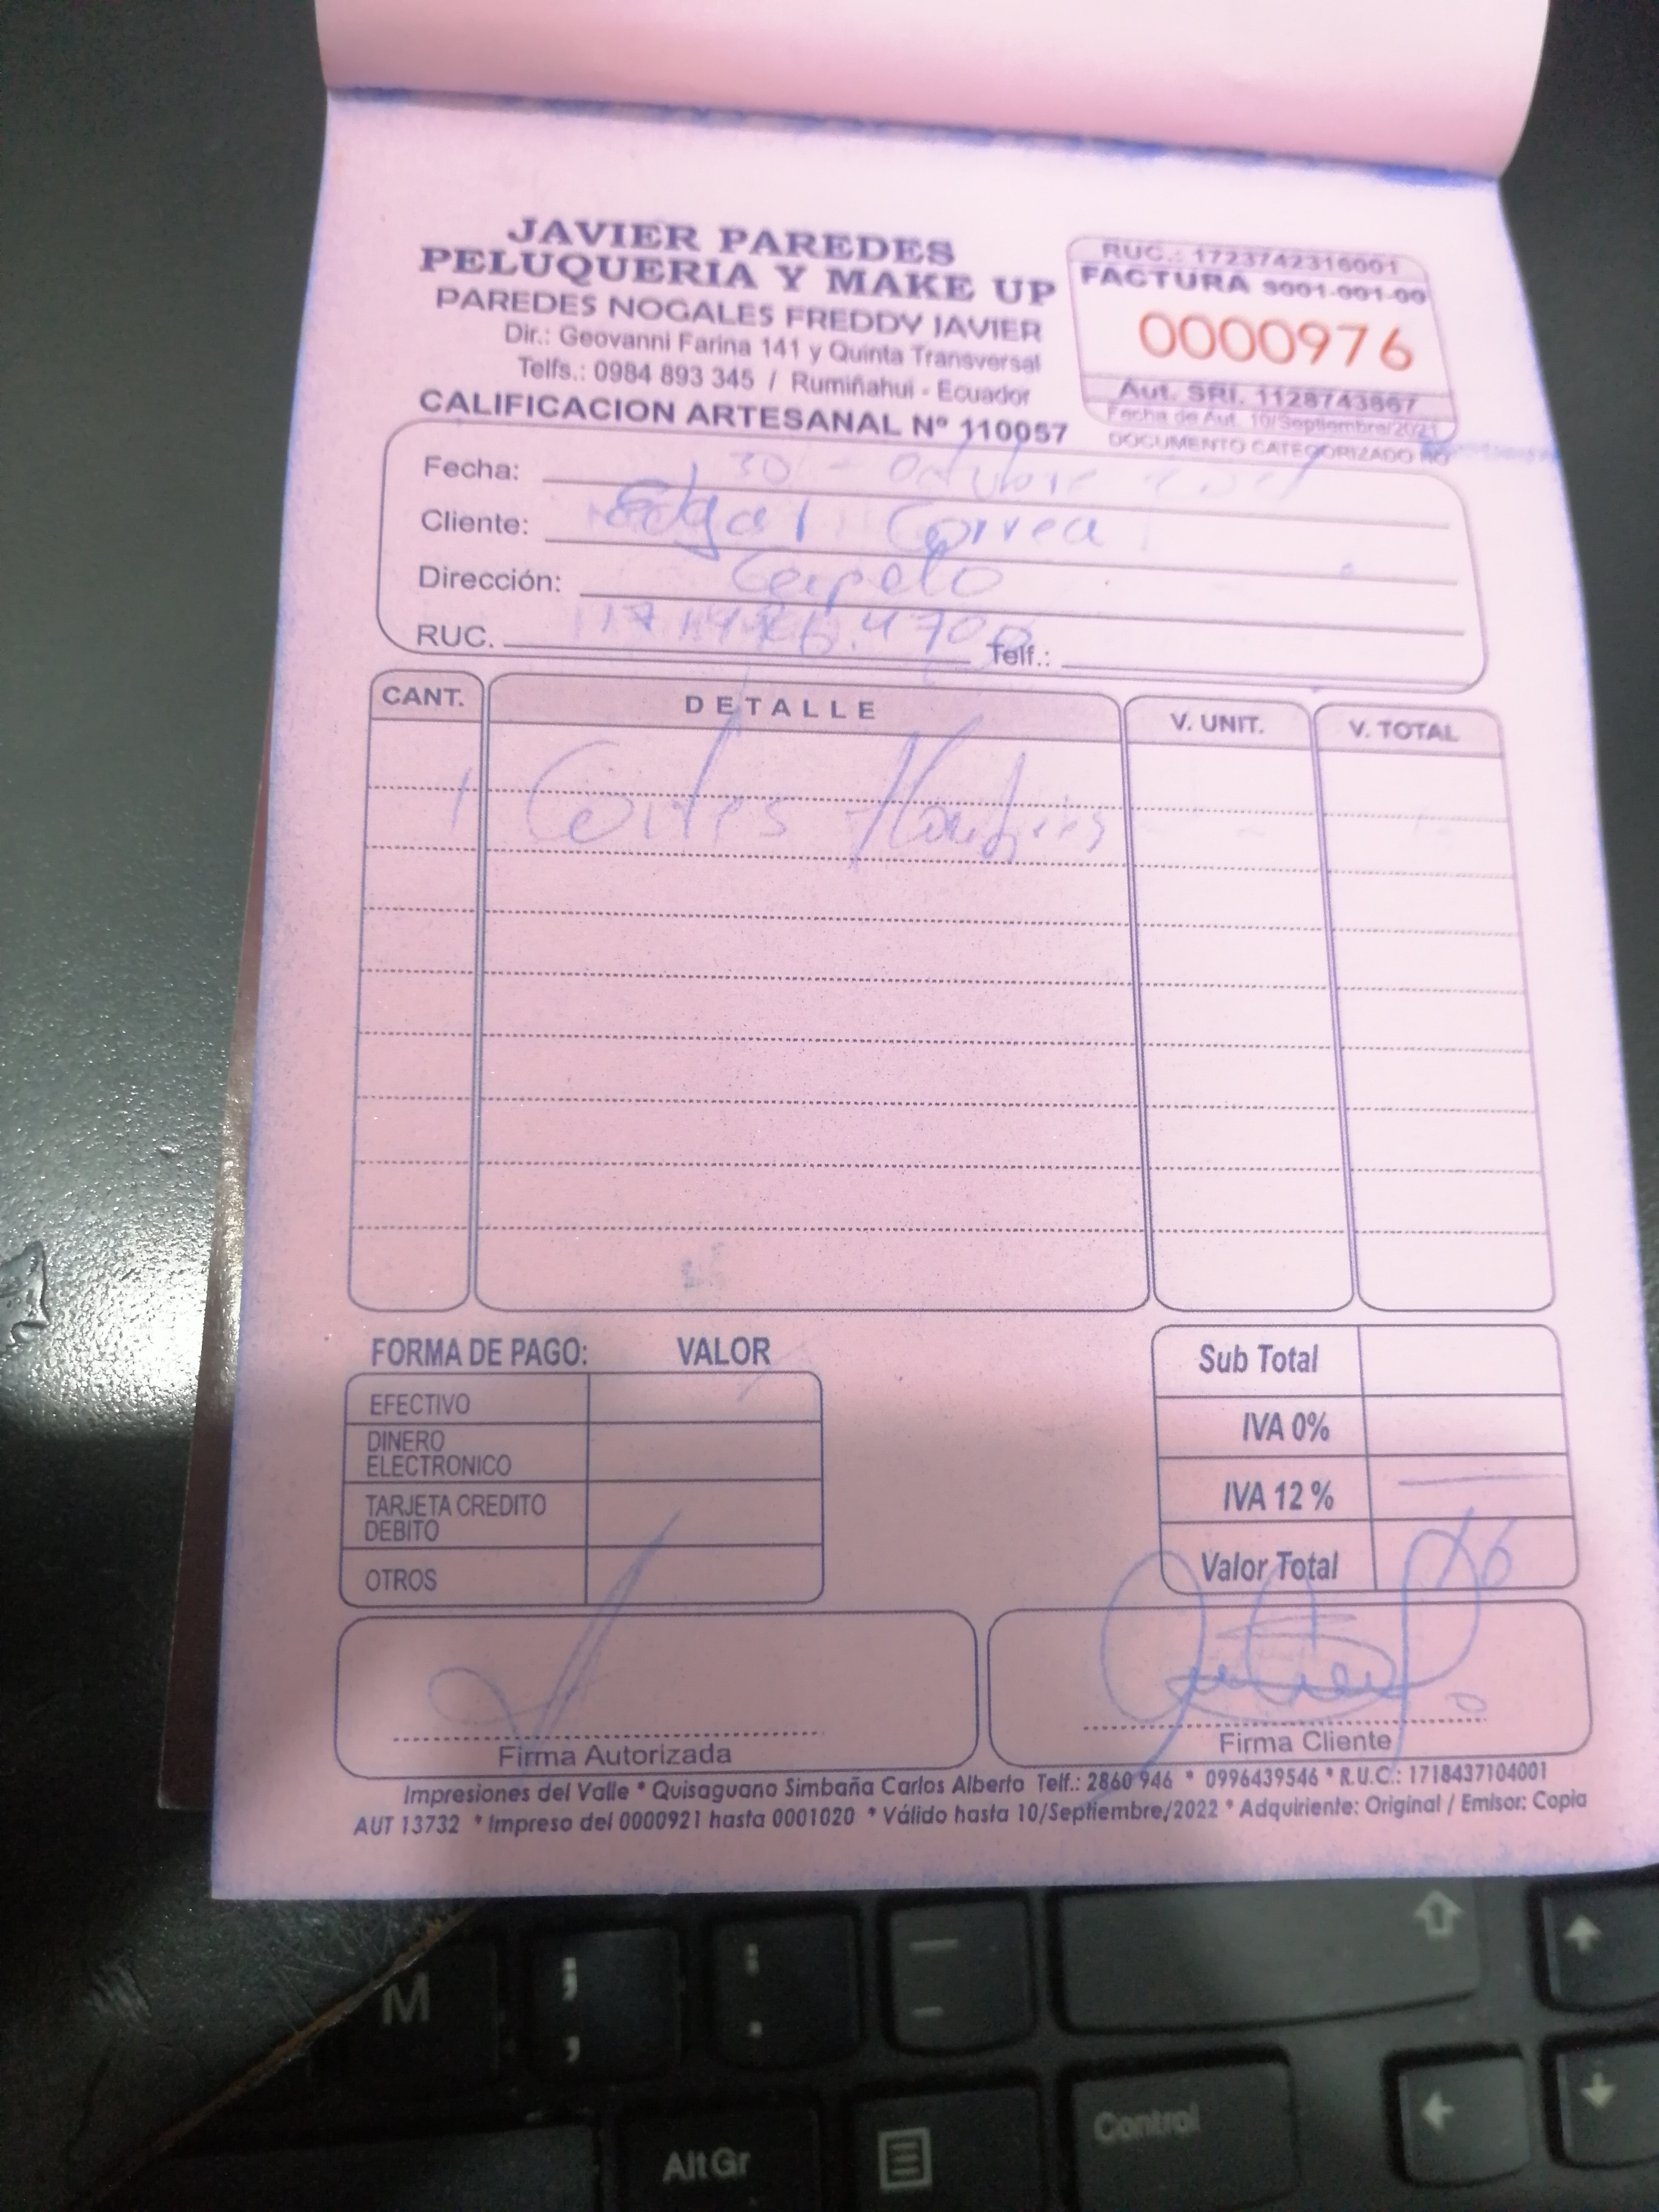 JAVIER PAREDES
PELUQUERIA Y MAKE UP
PAREDES NOGALES FREDDY JAVIER
Dir.: Geovanni Farina 141 y Quinta Transversal
Telfs.: 0984 893 345 / Rumiñahui - Ecuador
CALIFICACION ARTESANAL Nº 110057
RUC.: 1723742316001
FACTURA S001-001-00
0000976
Aut. SRI. 1128743867
Fecha de Aut. 10/Septiembre/2021
DOCUMENTO CATEGORIZADO NO
Fecha: 30 - Octubre
Cliente: Edgar Correa
Dirección:
RUC. Telf.:
CANT. DETALLE V. UNIT. V. TOTAL
1 Cortes
FORMA DE PAGO: VALOR
EFECTIVO
DINERO
ELECTRONICO
TARJETA CREDITO
DEBITO
OTROS
Sub Total
IVA 0%
IVA 12 %
Valor Total
Firma Autorizada
Firma Cliente
Impresiones del Valle * Quisaguano Simbaña Carlos Alberto Telf.: 2860 946 * 0996439546 * R.U.C.: 1718437104001
AUT 13732 * Impreso del 0000921 hasta 0001020 * Válido hasta 10/Septiembre/2022 * Adquiriente: Original / Emisor: Copia
M
; :
, .
AltGr
Control